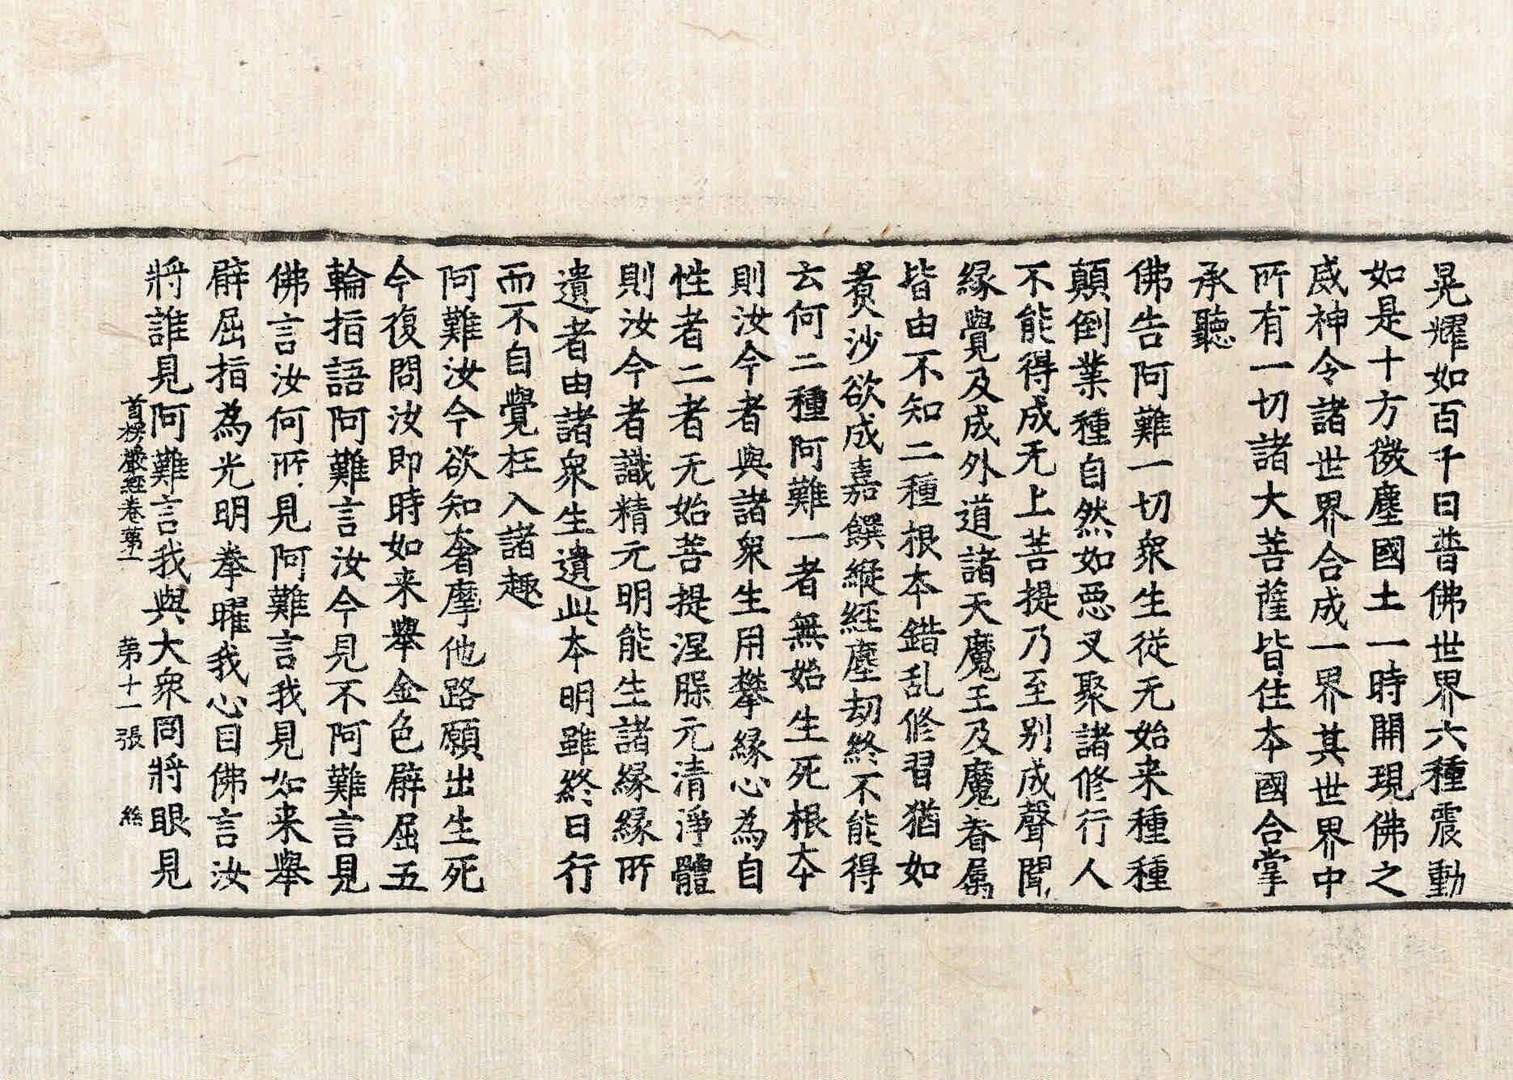 晃耀如百千日普佛世界六種震動
如是十方微塵國土一時開現佛之
威神令諸世界合成一界其世界中
所有一切諸大菩薩皆住本國合掌
承聽
佛告阿難一切衆生從无始来種種
顛倒業種自然如恶叉聚諸修行人
不能得成无上菩提乃至别成聲聞
緣覺及成外道諸天魔王及魔眷屬
皆由不知二種根夲錯乱修習猶如
煑沙欲成嘉饌縱經塵劫終不能得
云何二種阿難一者無始生死根夲
則汝今者與諸衆生用攀緣心為自
性者二者无始菩提涅槃元清淨體
則汝今者識精元明能生諸緣緣所
遺者由諸衆生遺此夲明雖終日行
而不自覺枉入諸趣
阿難汝今欲知奢摩他路願出生死
今復問汝即時如来舉金色臂屈五
輪指語阿難言汝今見不阿難言見
佛言汝何所見阿難言我見如来舉
臂屈指為光明拳曜我心目佛言汝
將誰見阿難言我與大衆同將眼見
首楞嚴經卷第一 第十一張 絲